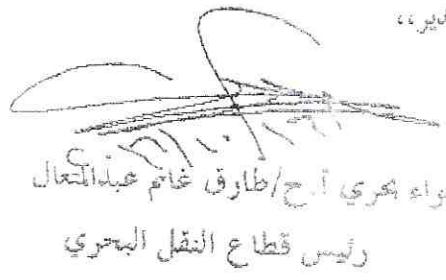 واء بحري أ.ح/طارق غانم عبدالمتعال
رئيس قطاع النقل البحري